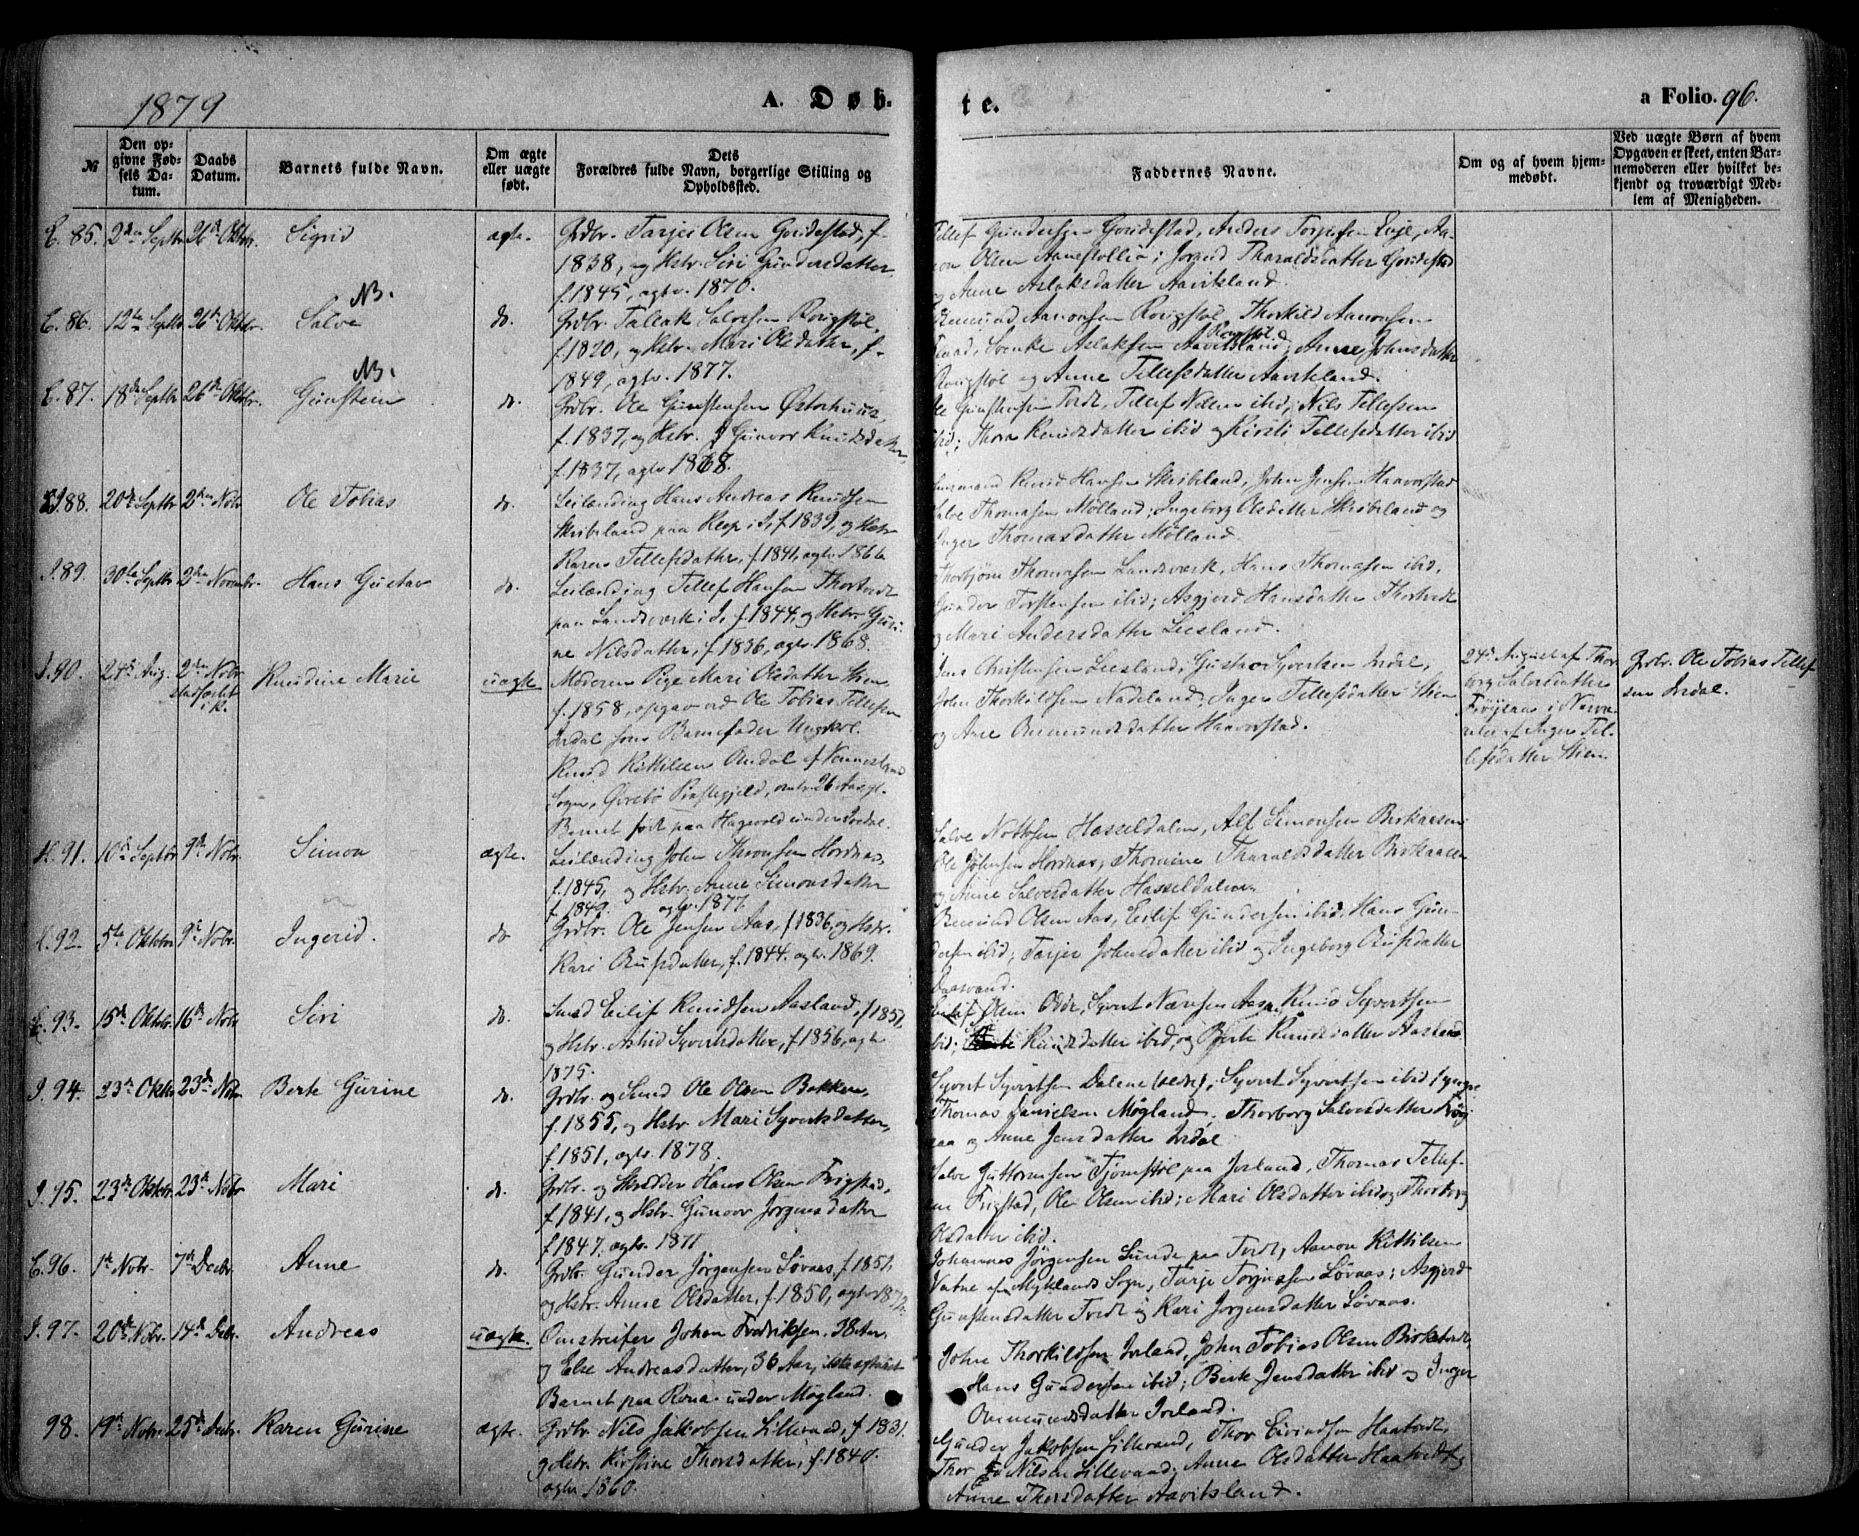 1879
A. Døb-
te.
a Folio. 96.
№
Den op-
givne Fød-
sels Da-
tum.
Daabs
Datum.
Barnets fulde Navn.
Om ægte
eller uægte
født.
Dets
Forældres fulde Navn, borgerlige Stilling og
Opholdssted.
Faddernes Navne.
Om og af hvem hjem-
medøbt.
Ved uægte Børn af hvem
Opgaven er skeet, enten Bar-
nemoderen eller hvilket be-
kjendt og troværdigt Med-
lem af Menigheden.
E. 85. 2den Septbr 26de Oktbr. Sigrid ægte.
Grdbr. Tarjei Olsen Gordestad, f.
1838, og Hstr. Siri Gundersdatter
f. 1845, ægtv. 1870.
Tellef Gundersen Gordestad, Anders Torjesen Euje, Aa-
non Olsen Aanestøllia; Jorand Tharaldsdatter Gordestad
og Anne Aslaksdatter Aavitsland.
NB.
E. 86. 12te Septbr 26de Oktbr. Salve do.
Grdbr. Tallak Salvesen Rovgstøl,
f. 1820, og Hstr. Mari Olsdatter, f.
1849, ægtv. 1877.
Aanonsen Rovgstøl, Thorkild Aanonsen
Aslaksen Aavitsland, Anne Johnsdatter
Rovgstøl og Anne Tellefsdatter Aavitsland.
NB.
E. 87. 18de Septbr 26de Oktbr. Gunstein do.
Grdbr. Ole Gunstensen Østerhuus,
f. 1837, og Hstr. Gunvor Knudsdatter,
f. 1837, ægtv 1868.
Ole Gunstensen Tvedt, Tellef Nilsen ibid, Nils Tellefsen
ibid; Thora Knudsdatter ibid og Kirsti Tellefsdatter ibid
I. 88. 20de Septbr 2den Nobr Ole Tobias do.
Leilænding Hans Andreas Knudsen
Skribeland paa Reep i I., f. 1839, og Hstr.
Karen Tellefsdatter, f. 1841, ægtv 1866
Knud Hansen Skribeland, John Jensen Haaverstad
Salve Thomassen Mølland; Ingeborg Olsdatter Skribeland og
Inger Thomasdatter Mølland.
I. 89. 30te Septbr 2den Novembr. Hans Gustav do.
Leilænding Tellef Hansen Thortvedt
paa Landsverk i I., f. 1844, og Hstr. Guri-
ne Nilsdatter, f. 1836, ægtv. 1868.
Thorbjørn Thomassen Landsværk, Hans Thomassen ibid,
Gunder Torstensen ibid; Asgjerd Hansdatter Thortvedt
og Mari Andersdatter Liesland.
I. 90. 24de Aug. 2den Nobr
stadfæstet
i K.
Knudine Marie uægte
Moderen Pige Mari Olsdatter Stien,
f. 1858, opgav ved Ole Tobias Tellefsen
Irdal som Barnefader Ungkarl
Knud Kittilsen Omdal af Vennesland
Sogn, Øvrebø Præstegjeld, omtr. 26 Aar gl.
Barnet født paa Hagevold under Iordal.
Jens Christensen Liesland, Gustav Syvertsen Irdal,
John Thorkildsen Nadeland; Inger Tellefsdatter Stien
og Ane Ommundsdatter Haaverstad.
24de August af Thor-
borg Salvesdatter
Frøjsaa i Nærvæ-
relse af Inger Tel-
lefsdatter Stien
Grbr. Ole Tobias Tellef-
sen Irdal.
H. 91. 10de Septbr 9de Nobr. Simon ægte.
Leilænding John Thronsen Hordnæs,
f. 1845, og Hstr. Anne Simonsdatter
f. 1849. ægtv. 1877.
Salve Nottosen Hasseldalen, Alf Simonsen Birkaasen
Ole Johnsen Hordnæs; Thomine Tharaldsdatter Birkaasen
og Anne Salvesdatter Hasseldalen
H. 92. 5te Oktobr. 9de Nobr. Ingerid. do
Grdbr. Ole Jensen Aas, f. 1836, og Hstr.
Kari Onufsdatter, f. 1844. ægtv. 1869.
Omund Olsen Aas, Eilif Gundersen ibid, Hans Gun-
dersen ibid; Tarjer Johnsdatter ibid og Ingeborg Onufsdatter
Daasvand.
E. 93. 15de Oktbr. 16de Nobr Siri do.
Smed Eilif Knudsen Aasland, f. 1851,
og Hstr. Astrid Syvertsdatter, f. 1856, ægtv
1875.
Eilif Olsen Odde, Syvert Næresen Aasn, Knud Syvertsen
ibid; Knudsdatter ibid, og Berte Knudsdatter Aasland
I. 94. 23de Oktbr 23de Nobr Berte Gurine do.
Grdbr. og Smed Ole Olsen Bakken,
f. 1855, og Hstr. Mari Syvertsdatter,
f. 1851, ægtv. 1878.
Syvert Syvertsen Dalene (ældre), Syvert Syvertsen ibid (yngre
Thomas Danielsen Møgland; Thorborg Salvesdatter Frøj-
saa og Anne Jensdatter Irdal
I. 95. 23de Oktbr. 23de Nobr Mari do.
Grdbr. og Skredder Hans Olsen Frigstad,
f. 1841, og Hstr. Gunvor Jørgensdatter
f. 1847, ægtv. 1871
Salve Guttormsen Tjomstøl paa Iveland, Thomas Tellef-
sen Frigstad, Ole Olsen ibid; Mari Olsdatter ibid og Thorborg
Olsdatter ibid.
E. 96. 1ste Nobr. 7de Decbr Anne do.
Grdbr. Gunder Jørgensen Løvaas, f. 1851,
og Hstr. Anne Olsdatter, f. 1850, ægtv
Johannes Jørgensen Lunde paa Tvedt, Aanon Kittilsen
Vatne af Myklands Sogn, Tarje Torjussen Løvaas; Asgjerd
Gunstensdatter Tvedt og Kari Jørgensdatter Løvaas.
I. 97. 20de Nobr. 14de Debr. Andreas uægte.
Omstreifer Johan Fredriksen, 38 Aar,
og Else Andreasdatter, 36 Aar,
Barnet paa Rona under Møgland.
John Thorkildsen Iveland, John Tobias Olsen Birketvedt,
Hans Gundersen ibid; Berte Jensdatter ibid og Inger
Ommundsdatter Iveland.
98. 19de Nobr. 25de Decbr. Karen Gurine ægte.
Grdbr. Nils Jakobsen Lillevand, f 1831.
og Hstr. Kirstine Thorsdatter, f. 1840.
ægtv 1860.
Gunder Jakobsen Lillevand, Thor Eivindsen Haatvedt,
Thor Nilsen Lillevand; Anne Olsdatter Haatvedt og
Anne Thorsdatter Aavitsland.